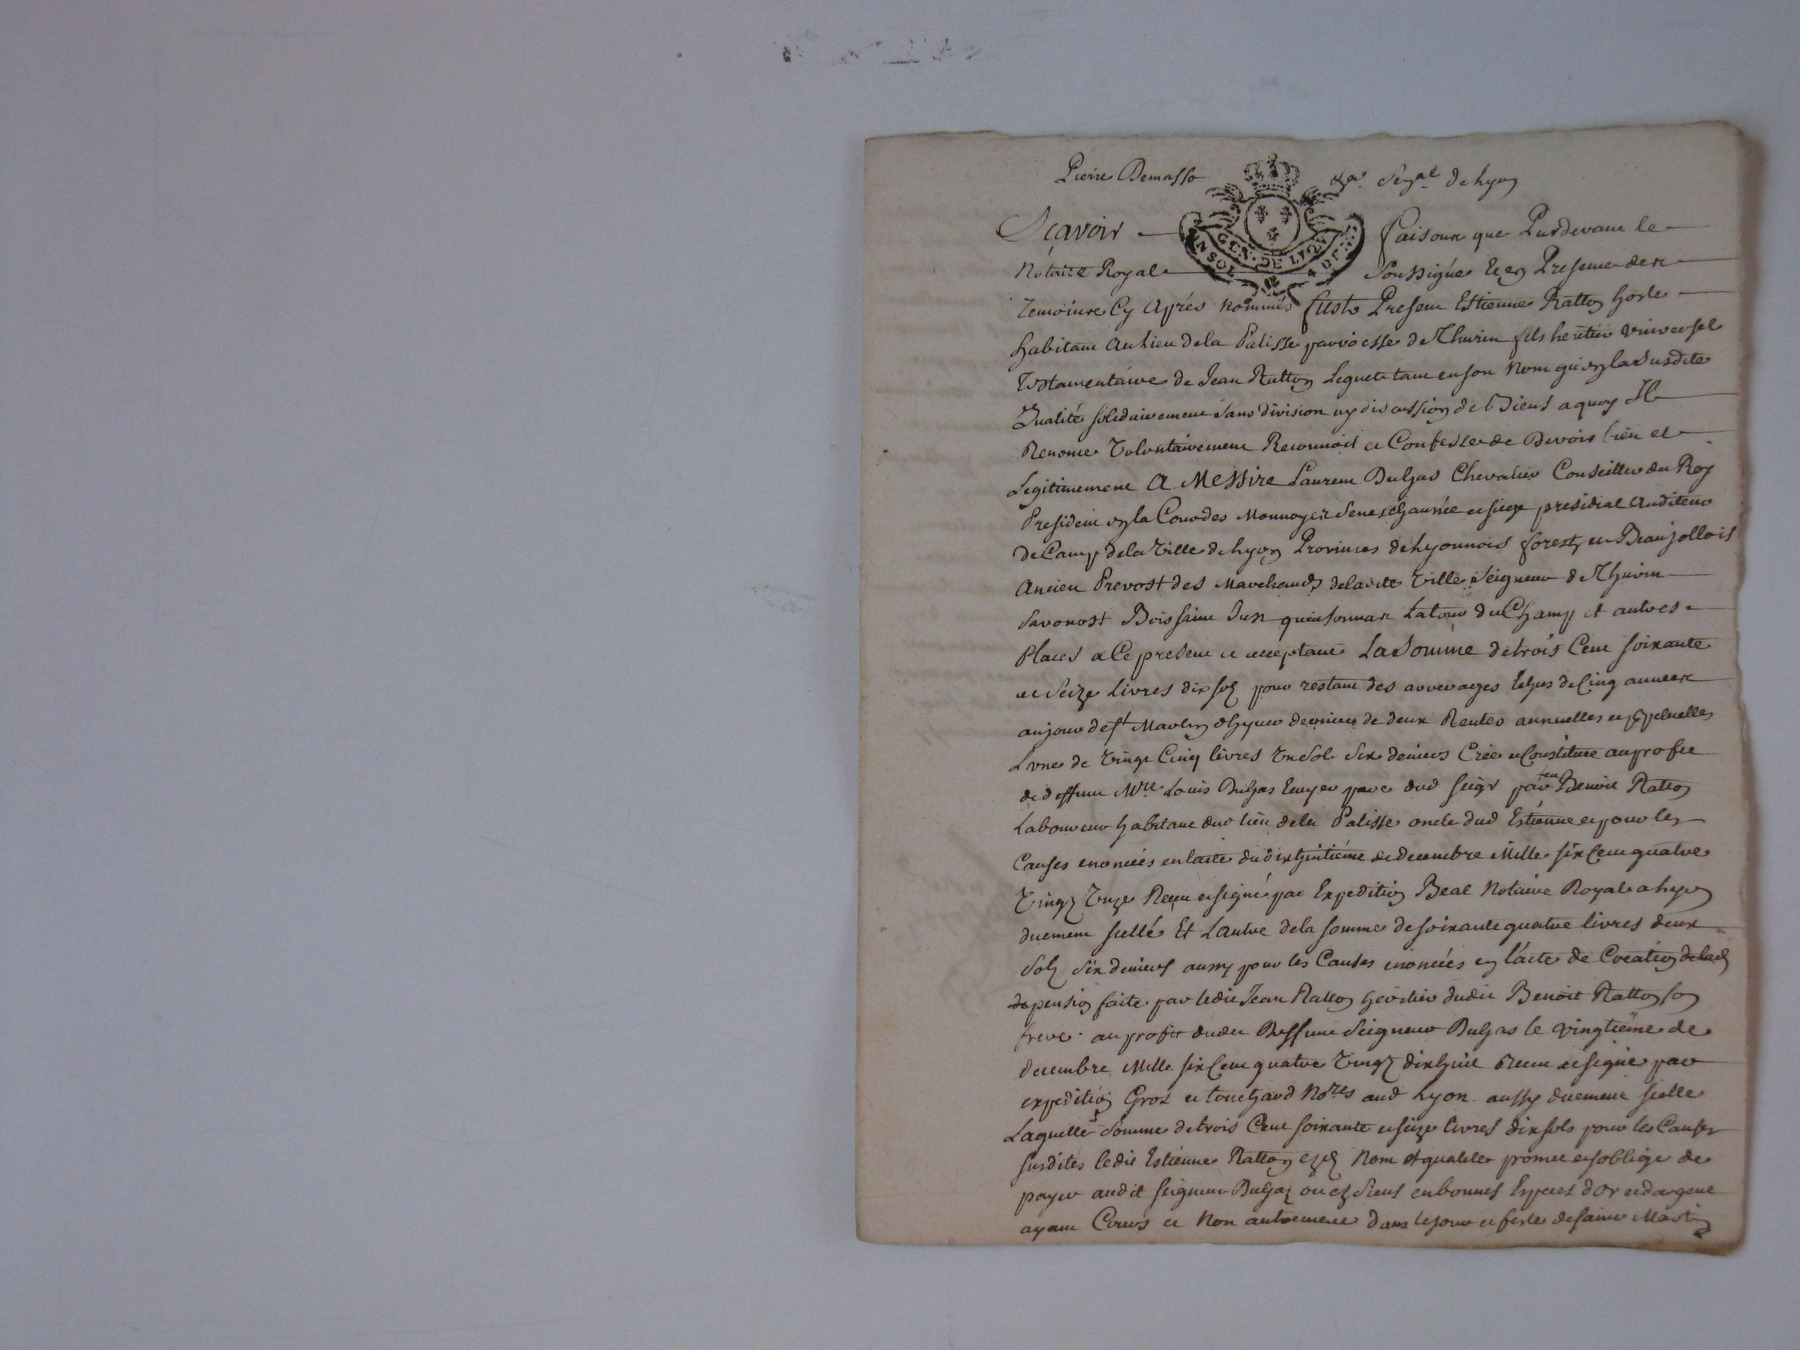 Pierre Demasso &a. Seg.al de Lyon
GEN. DE LYON
UN SOL 4 DEN
Scavoir faisons que Pardevant le
Notaire Royal soussigné et en Presence des
Temoins Cy Aprés nommés fusts Present Estienne Ratton hoste
habitant au Lieu de la Palisse parroisse de Thurin fils heritier universel
Testamentaire de Jean Ratton Lequel tant en son Nom qu'en la susdite
Qualité solidairement sans division ny discussion de Biens a quoy Il
Renonce Volontairement Reconnoit et Confesse de Devoir bien et
Legitimement A Messire Laurent Dugas Chevalier Conseiller du Roy
President en la Cour des Monnoyes Senechaussée et siege presidial Auditeur
de Camp de la Ville de Lyon Provinces de Lyonnois forest et Beaujollois
Ancien Prevost des Marchands de ladite Ville Seigneur de Thurin
Savonost Bois saint Just quinsonnas Latour du Champ et autres
Places a Ce present et acceptant La Somme de trois Cent soixante
et Seize Livres dix sols pour restant des arrerages Echus de Cinq années
au jour de st Martin d'hyver dernier de deux Rentes annuelles et
L'une de Vingt Cinq livres Un Sol Six deniers Crée et Constituée au profit
de deffunt Mre Louis Dugas Ecuyer pere dud seigr par feu Benoit Ratton
Laboureur habitant dud lieu de la Palisse oncle dud Estienne et pour les
Causes enoncées en l'acte du dix huitiéme de decembre Mille six Cent quatre
Vingt Unze Receu et signé par Expedition Beal Notaire Royal a Lyon
duement scellé Et L'autre de la somme de soixante quatre livres deux
Sols Six deniers aussy pour les Causes enoncées en l'acte de Creation de lad
de pension faite par ledit Jean Ratton heritier dudit Benoit Ratton son
frere au profit dudit Deffunt Seigneur Dugas le vingtiéme de
decembre Mille six Cent quatre Vingt dix huit Receu et signé par
expedition Gros et touchard Nores aud Lyon aussy duement scellé
Laquelle Somme de trois Cent soixante et seize livres dix sols pour les Causes
susdites ledit Estienne Ratton Nom et qualité promet et s'oblige de
payer audit seigneur Dugas ou es siens en bonnes Especes d'or et d'argent
ayant Cours et Non autrement dans le jour et feste de saint Martin